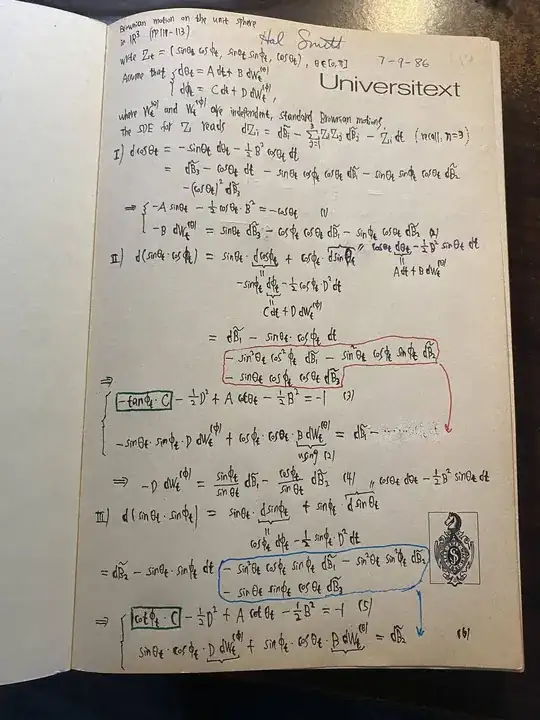 Brownian motion on the unit sphere
in ℝ³ (pp 111-113)
Hal Smith
7-9-86
Universitext
write Z_t = (sinθ_t cosϕ_t, sinθ_t sinϕ_t, cosθ_t), θ∈[0,π]
Assume that { dθ_t = A dt + B dW_t^(θ)
dϕ_t = C dt + D dW_t^(ϕ),
where W_t^(θ) and W_t^(ϕ) are independent, standard Brownian motions.
The SDE for Z_i reads dZ_i = dB̃_i - Σ_{j=1}^3 Z_i Z_j dB̃_j - Z_i dt (recall, n=3)
I) d cosθ_t = -sinθ_t dθ_t - ½ B² cosθ_t dt
= dB̃_3 - cosθ_t dt - sinθ_t cosϕ_t cosθ_t dB̃_1 - sinθ_t sinϕ_t cosθ_t dB̃_2
- (cosθ_t)² dB̃_3
⇒ { -A sinθ_t - ½ cosθ_t · B² = -cosθ_t (1)
-B dW_t^(θ) = sinθ_t dB̃_3 - cosϕ_t cosθ_t dB̃_1 - sinϕ_t cosθ_t dB̃_2 (2)
II) d(sinθ_t · cosϕ_t) = sinθ_t · d cosϕ_t + cosϕ_t · d sinθ_t = cosθ_t dθ_t - ½ B² sinθ_t dt
A dt + B dW_t^(θ)
-sinϕ_t dϕ_t - ½ cosϕ_t · D² dt
C dt + D dW_t^(ϕ)
= dB̃_1 - sinθ_t · cosϕ_t dt
- sin²θ_t cos²ϕ_t dB̃_1 - sin²θ_t cosϕ_t sinϕ_t dB̃_2
- sinθ_t cosϕ_t cosθ_t dB̃_3
⇒ { -tanϕ_t · C - ½ D² + A cotθ_t - ½ B² = -1 (3)
-sinθ_t · sinϕ_t · D dW_t^(ϕ) + cosϕ_t · cosθ_t · B dW_t^(θ) = dB̃_1 -
using (2)
⇒ -D dW_t^(ϕ) = sinϕ_t/sinθ_t dB̃_1 - cosϕ_t/sinθ_t dB̃_2 (4) = cosθ_t dθ_t - ½ B² sinθ_t dt
III) d(sinθ_t · sinϕ_t) = sinθ_t · d sinϕ_t + sinϕ_t · d sinθ_t
cosϕ_t dϕ_t - ½ sinϕ_t · D² dt
= dB̃_2 - sinθ_t · sinϕ_t dt - sin²θ_t cosϕ_t sinϕ_t dB̃_1 - sin²θ_t sin²ϕ_t dB̃_2
- sinθ_t sinϕ_t cosθ_t dB̃_3
⇒ { cotϕ_t · C - ½ D² + A cotθ_t - ½ B² = -1 (5)
sinθ_t · cosϕ_t · D dW_t^(ϕ) + sinϕ_t · cosθ_t · B dW_t^(θ) = dB̃_2 (6)